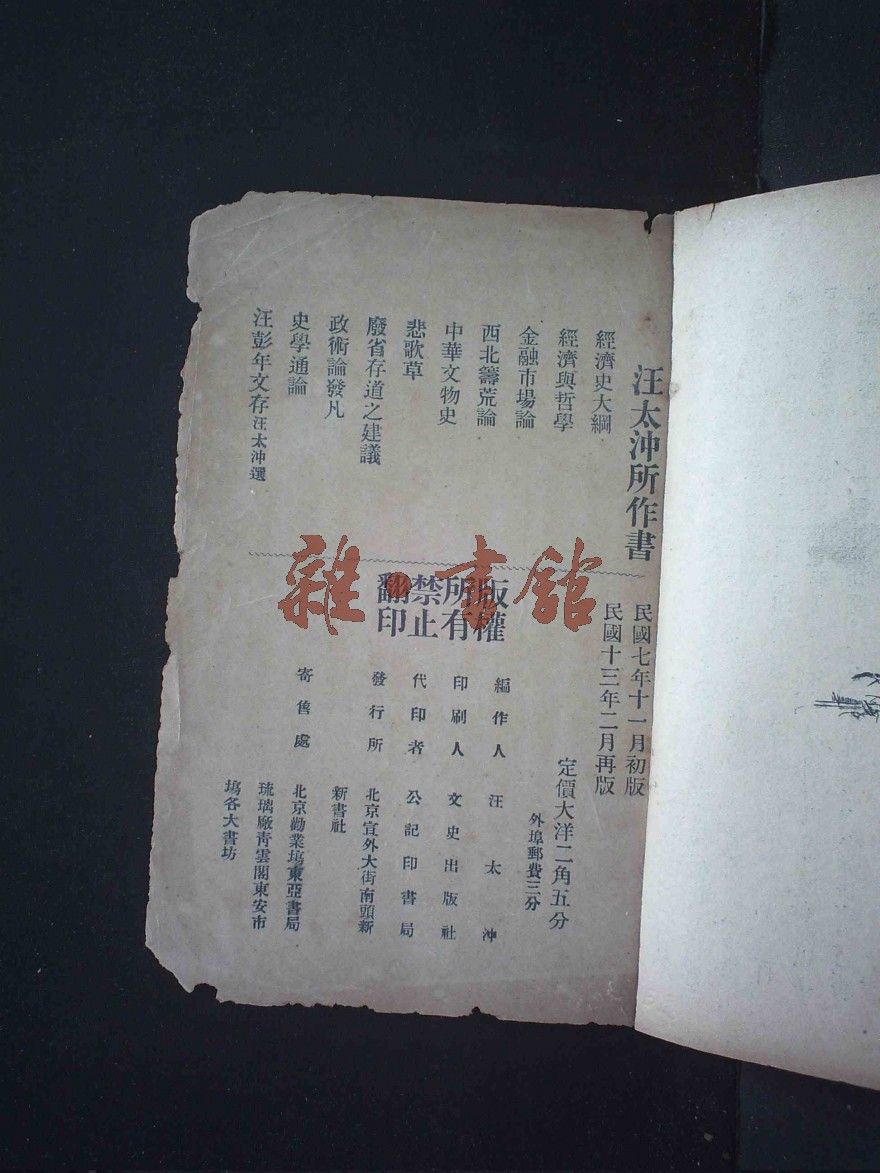 汪太沖所作書
經濟史大綱
經濟與哲學
金融市場論
西北籌荒論
中華文物史
悲歌草
廢省存道之建議
政術論發凡
史學通論
汪彭年文存汪太沖選
民國七年十一月初版
民國十三年二月再版
版權
所有
禁止
翻印
定價大洋二角五分
外埠郵費三分
編作人 汪太沖
印刷人 文史出版社
代印者 公記印書局
發行所 北京宣外大街南頭新
新書社
寄售處 北京勸業塲東亞書局
琉璃廠靑雲閣東安市
塲各大書坊
雜·書館